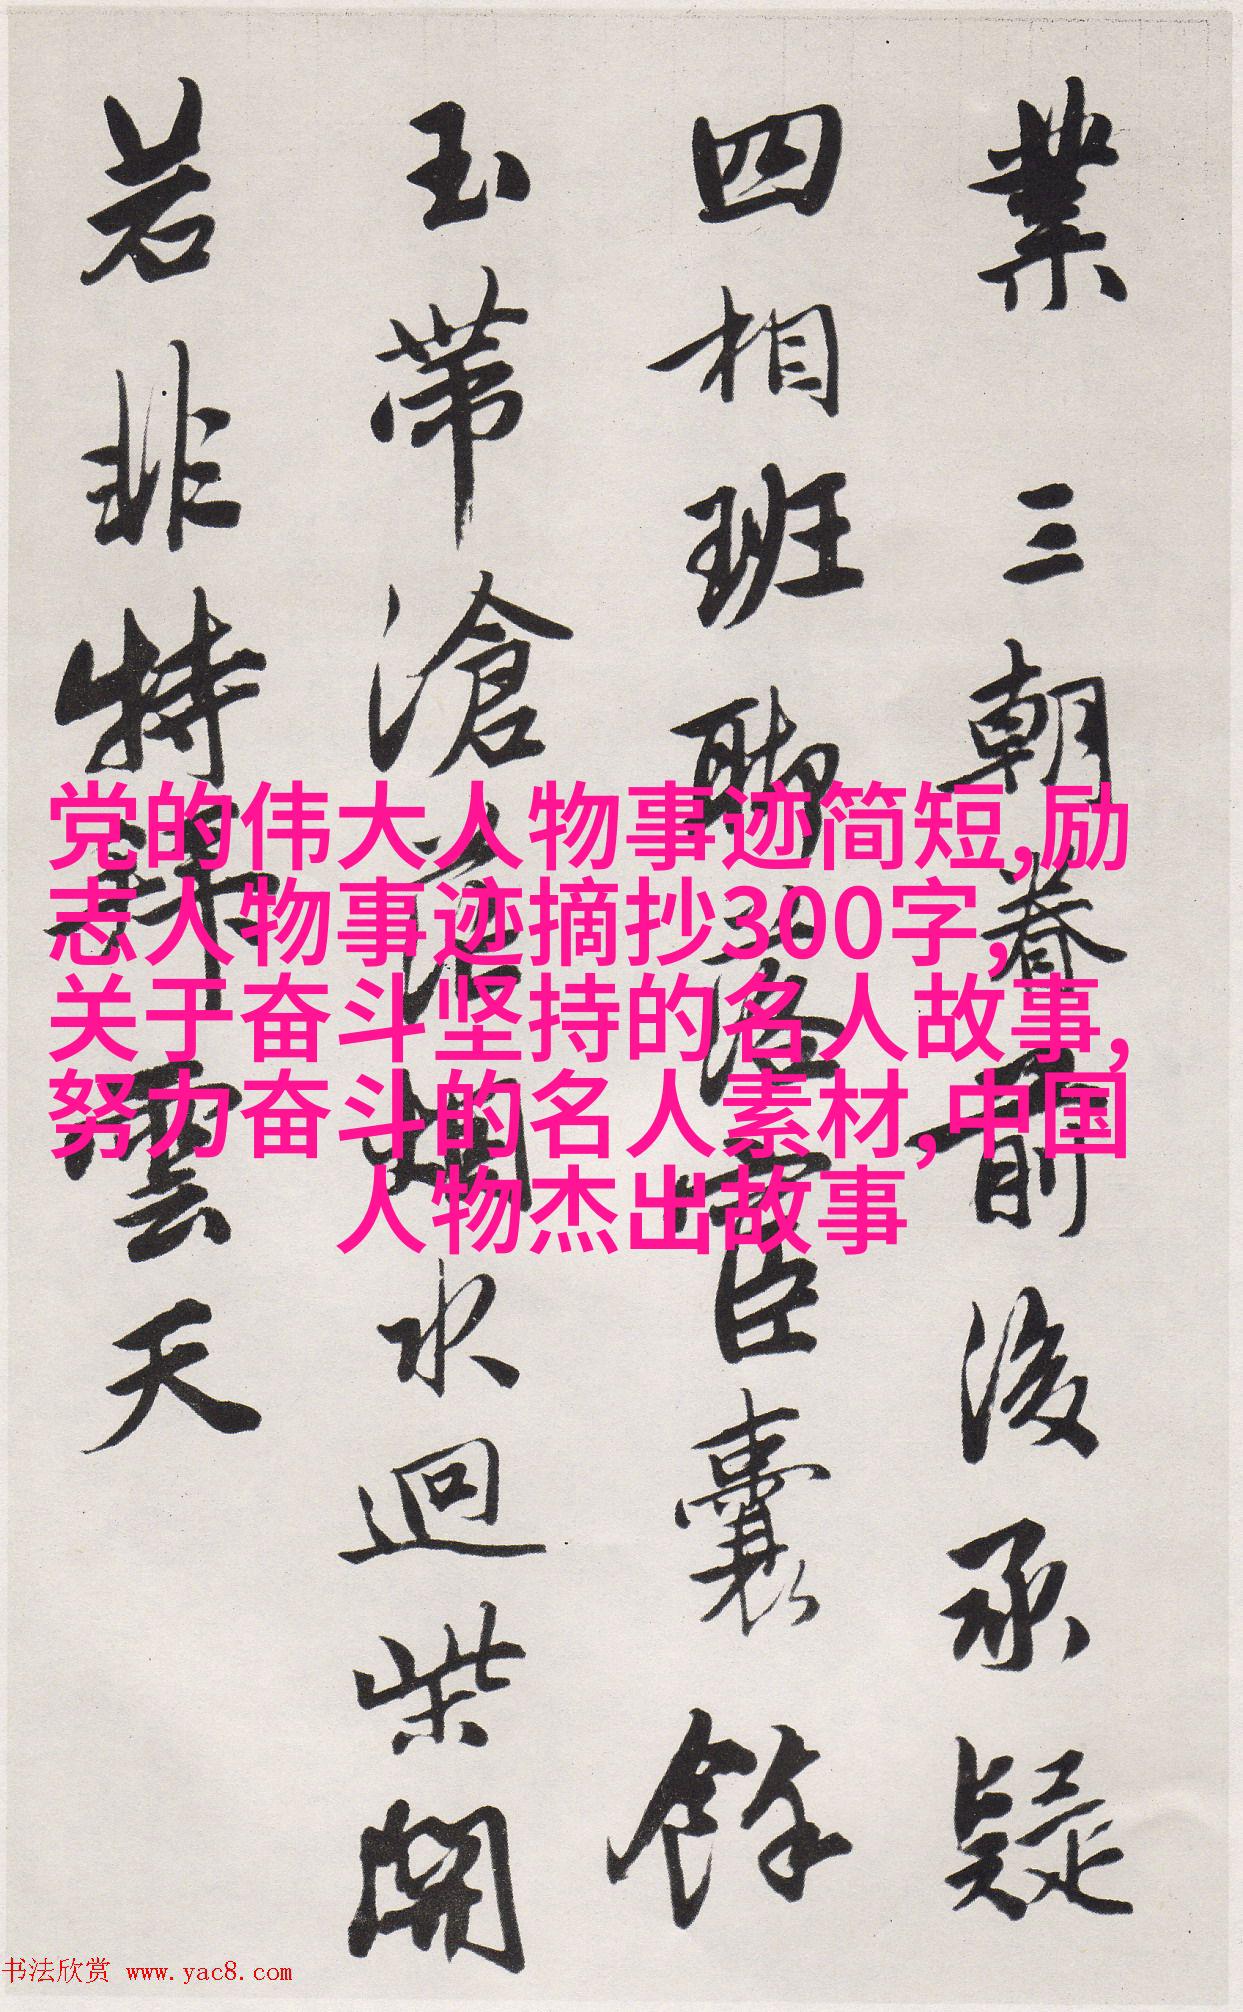 業 三朝眷前後承疑
四相班聯落宦囊餘
玉帶滄水迴柴開
若非特雲天
党的伟大人物事迹简短,励
志人物事迹摘抄300字,
关于奋斗坚持的名人故事,
努力奋斗的名人素材,中国
人物杰出故事
书法欣赏 www.yac8.com